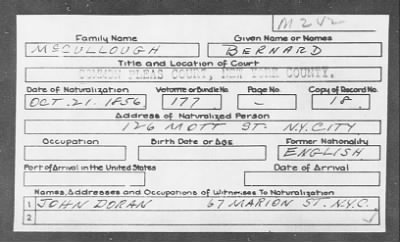 M242
Family Name Given Name or Names
McCULLOUGH BERNARD
Title and Location of Court
COMMON PLEAS COURT, NEW YORK COUNTY.
Date of Naturalization Volume or Bundle No. Page No. Copy of Record No.
OCT. 21. 1856 177 - 18
Address of Naturalized Person
126 MOTT ST. N.Y. CITY
Occupation Birth Date or Age Former Nationality
ENGLISH
Port of Arrival in the United States Date of Arrival
Names, Addresses and Occupations of Witnesses To Naturalization
1 JOHN DORAN 67 MARION ST. N.Y.C.
2